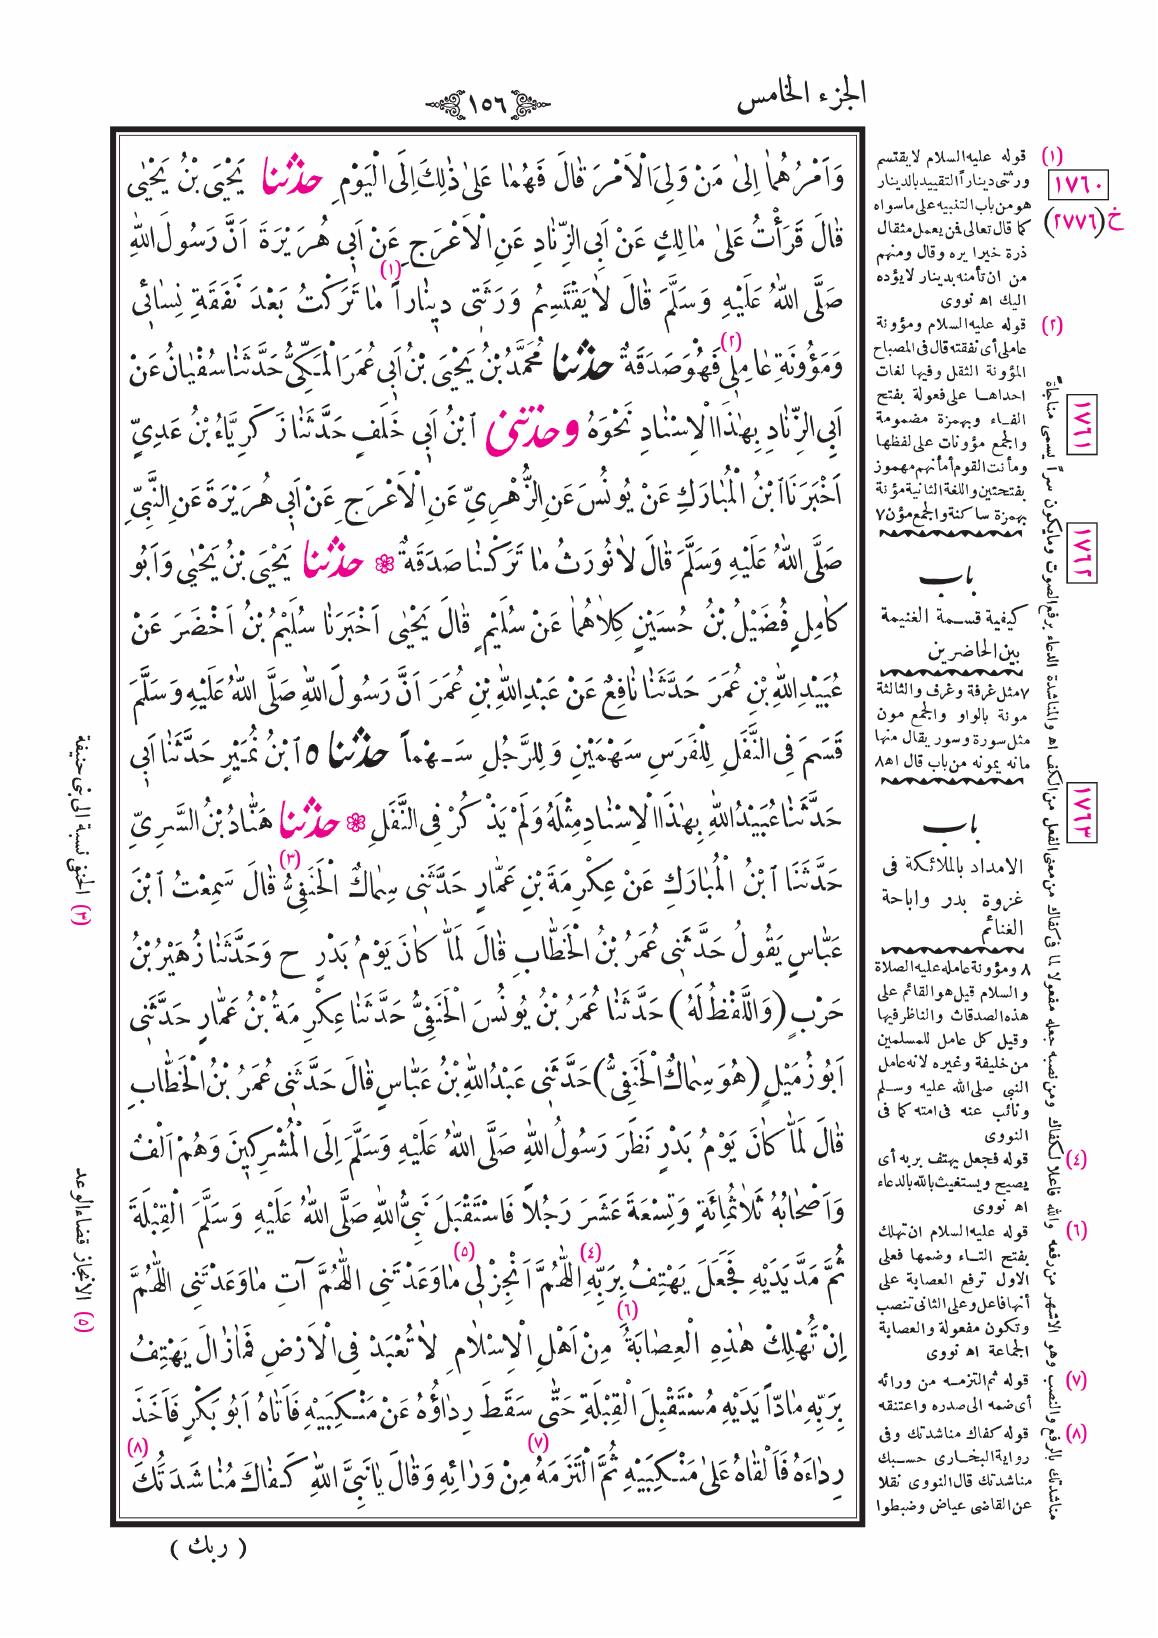 الجزء الخامس
١٥٦
وَاَمْرُهُمَا اِلىٰ مَنْ وَلِىَ الْاَمْرَ قَالَ فَهُمَا عَلىٰ ذٰلِكَ اِلَى الْيَوْمِ حدثنا يَحْيَى بْنُ يَحْيٰى
قَالَ قَرَأْتُ عَلىٰ مَالِكٍ عَنْ اَبِى الزِّنَادِ عَنِ الْاَعْرَجِ عَنْ اَبِى هُرَيْرَةَ اَنَّ رَسُولَ اللّٰهِ
صَلَّى اللّٰهُ عَلَيْهِ وَسَلَّمَ قَالَ لَا يَقْتَسِمُ وَرَثَتِى دِينَاراً (١) مَا تَرَكْتُ بَعْدَ نَفَقَةِ نِسَائِى
وَمَؤُونَةِ عَامِلِى (٢) فَهُوَ صَدَقَةٌ حدثنا مُحَمَّدُ بْنُ يَحْيَى بْنُ اَبِى عُمَرَ الْمَكِّىُّ حَدَّثَنَا سُفْيَانُ عَنْ
اَبِى الزِّنَادِ بِهٰذَا الْاِسْنَادِ نَحْوَهُ وحدثنى ابْنُ اَبِى خَلَفٍ حَدَّثَنَا زَكَرِيَّاءُ بْنُ عَدِىٍّ
اَخْبَرَنَا ابْنُ الْمُبَارَكِ عَنْ يُونُسَ عَنِ الزُّهْرِىِّ عَنِ الْاَعْرَجِ عَنْ اَبِى هُرَيْرَةَ عَنِ النَّبِىِّ
صَلَّى اللّٰهُ عَلَيْهِ وَسَلَّمَ قَالَ لَا نُورَثُ مَا تَرَكْنَا صَدَقَةٌ حدثنا يَحْيَى بْنُ يَحْيٰى وَاَبُو
كَامِلٍ فُضَيْلُ بْنُ حُسَيْنٍ كِلَاهُمَا عَنْ سُلَيْمٍ قَالَ يَحْيٰى اَخْبَرَنَا سُلَيْمُ بْنُ اَخْضَرَ عَنْ
عُبَيْدِ اللّٰهِ بْنِ عُمَرَ حَدَّثَنَا نَافِعٌ عَنْ عَبْدِ اللّٰهِ بْنِ عُمَرَ اَنَّ رَسُولَ اللّٰهِ صَلَّى اللّٰهُ عَلَيْهِ وَسَلَّمَ
قَسَمَ فِى النَّفَلِ لِلْفَرَسِ سَهْمَيْنِ وَلِلرَّجُلِ سَهْماً حدثنا ٥ ابْنُ نُمَيْرٍ حَدَّثَنَا اَبِى
حَدَّثَنَا عُبَيْدُ اللّٰهِ بِهٰذَا الْاِسْنَادِ مِثْلَهُ وَلَمْ يَذْكُرْ فِى النَّفَلِ حدثنا هَنَّادُ بْنُ السَّرِىِّ
حَدَّثَنَا ابْنُ الْمُبَارَكِ عَنْ عِكْرِمَةَ بْنِ عَمَّارٍ حَدَّثَنِى سِمَاكٌ الْحَنَفِىُّ (٣) قَالَ سَمِعْتُ ابْنَ
عَبَّاسٍ يَقُولُ حَدَّثَنِى عُمَرُ بْنُ الْخَطَّابِ قَالَ لَمَّا كَانَ يَوْمُ بَدْرٍ ح وَحَدَّثَنَا زُهَيْرُ بْنُ
حَرْبٍ (وَاللَّفْظُ لَهُ) حَدَّثَنَا عُمَرُ بْنُ يُونُسَ الْحَنَفِىُّ حَدَّثَنَا عِكْرِمَةُ بْنُ عَمَّارٍ حَدَّثَنِى
اَبُو زُمَيْلٍ (هُوَ سِمَاكٌ الْحَنَفِىُّ) حَدَّثَنِى عَبْدُ اللّٰهِ بْنُ عَبَّاسٍ قَالَ حَدَّثَنِى عُمَرُ بْنُ الْخَطَّابِ
قَالَ لَمَّا كَانَ يَوْمُ بَدْرٍ نَظَرَ رَسُولُ اللّٰهِ صَلَّى اللّٰهُ عَلَيْهِ وَسَلَّمَ اِلَى الْمُشْرِكِينَ وَهُمْ اَلْفٌ
وَاَصْحَابُهُ ثَلَاثُمِائَةٍ وَتِسْعَةَ عَشَرَ رَجُلاً فَاسْتَقْبَلَ نَبِىُّ اللّٰهِ صَلَّى اللّٰهُ عَلَيْهِ وَسَلَّمَ الْقِبْلَةَ
ثُمَّ مَدَّ يَدَيْهِ فَجَعَلَ يَهْتِفُ بِرَبِّهِ (٤) اَللّٰهُمَّ اَنْجِزْ لِى (٥) مَا وَعَدْتَنِى اَللّٰهُمَّ آتِ مَا وَعَدْتَنِى اَللّٰهُمَّ
اِنْ تَهْلِكْ هٰذِهِ الْعِصَابَةُ (٦) مِنْ اَهْلِ الْاِسْلَامِ لَا تُعْبَدْ فِى الْاَرْضِ فَمَا زَالَ يَهْتِفُ
بِرَبِّهِ مَادّاً يَدَيْهِ مُسْتَقْبِلَ الْقِبْلَةِ حَتّٰى سَقَطَ رِدَاؤُهُ عَنْ مَنْكِبَيْهِ فَاَتَاهُ اَبُو بَكْرٍ فَاَخَذَ
رِدَاءَهُ فَاَلْقَاهُ عَلىٰ مَنْكِبَيْهِ ثُمَّ الْتَزَمَهُ (٧) مِنْ وَرَائِهِ وَقَالَ يَا نَبِىَّ اللّٰهِ كَفَاكَ مُنَاشَدَتُكَ (٨)
( ربك )
١٧٦٠
خ (٢٧٧٦)
١٧٦١
١٧٦٢
١٧٦٣
(١) قوله عليه السلام لا يقتسم
ورثتى ديناراً التقييد بالدينار
هو من باب التنبيه على ما سواه
كما قال تعالى فمن يعمل مثقال
ذرة خيرا يره وقال ومنهم
من ان تأمنه بدينار لا يؤده
اليك اه نووى
(٢) قوله عليه السلام ومؤونة
عاملى أى نفقته قال فى المصباح
المؤونة الثقل وفيها لغات
احداها على فعولة بفتح
الفاء وبهمزة مضمومة
والجمع مؤونات على لفظها
ومأنت القوم أمأنهم مهموز
بفتحتين واللغة الثانية مؤنة
بهمزة ساكنة والجمع مؤن ٧
باب
كيفية قسمة الغنيمة
بين الحاضرين
٧ مثل غرفة وغرف والثالثة
مونة بالواو والجمع مون
مثل سورة وسور يقال منها
مانه يمونه من باب قال اه ٨
باب
الامداد بالملائكة فى
غزوة بدر واباحة
الغنائم
٨ ومؤونة عامله عليه الصلاة
والسلام قيل هو القائم على
هذه الصدقات والناظر فيها
وقيل كل عامل للمسلمين
من خليفة وغيره لانه عامل
النبى صلى الله عليه وسلم
ونائب عنه فى امته كما فى
النووى
(٤) قوله فجعل يهتف بربه أى
يصيح ويستغيث بالله بالدعاء
اه نووى
(٦) قوله عليه السلام ان تهلك
بفتح التاء وضمها فعلى
الاول ترفع العصابة على
أنها فاعل وعلى الثانى تنصب
وتكون مفعولة والعصابة
الجماعة اه نووى
(٧) قوله ثم التزمه من ورائه
أى ضمه الى صدره واعتنقه
(٨) قوله كفاك مناشدتك وفى
رواية البخارى حسبك
مناشدتك قال النووى نقلا
عن القاضى عياض وضبطوا
مناشدتك بالرفع والنصب وهو الاشهر من رفعه والله فاعلا لكفاك ومن نصبه جعله مفعولا لما فى كفاك من معنى الفعل من الكف اه والمناشدة الدعاء برفع الصوت وما يكون سراً يسمى مناجاة
(٣) الحنفى نسبة الى بنى حنيفة
(٥) الانجاز قضاء الوعد